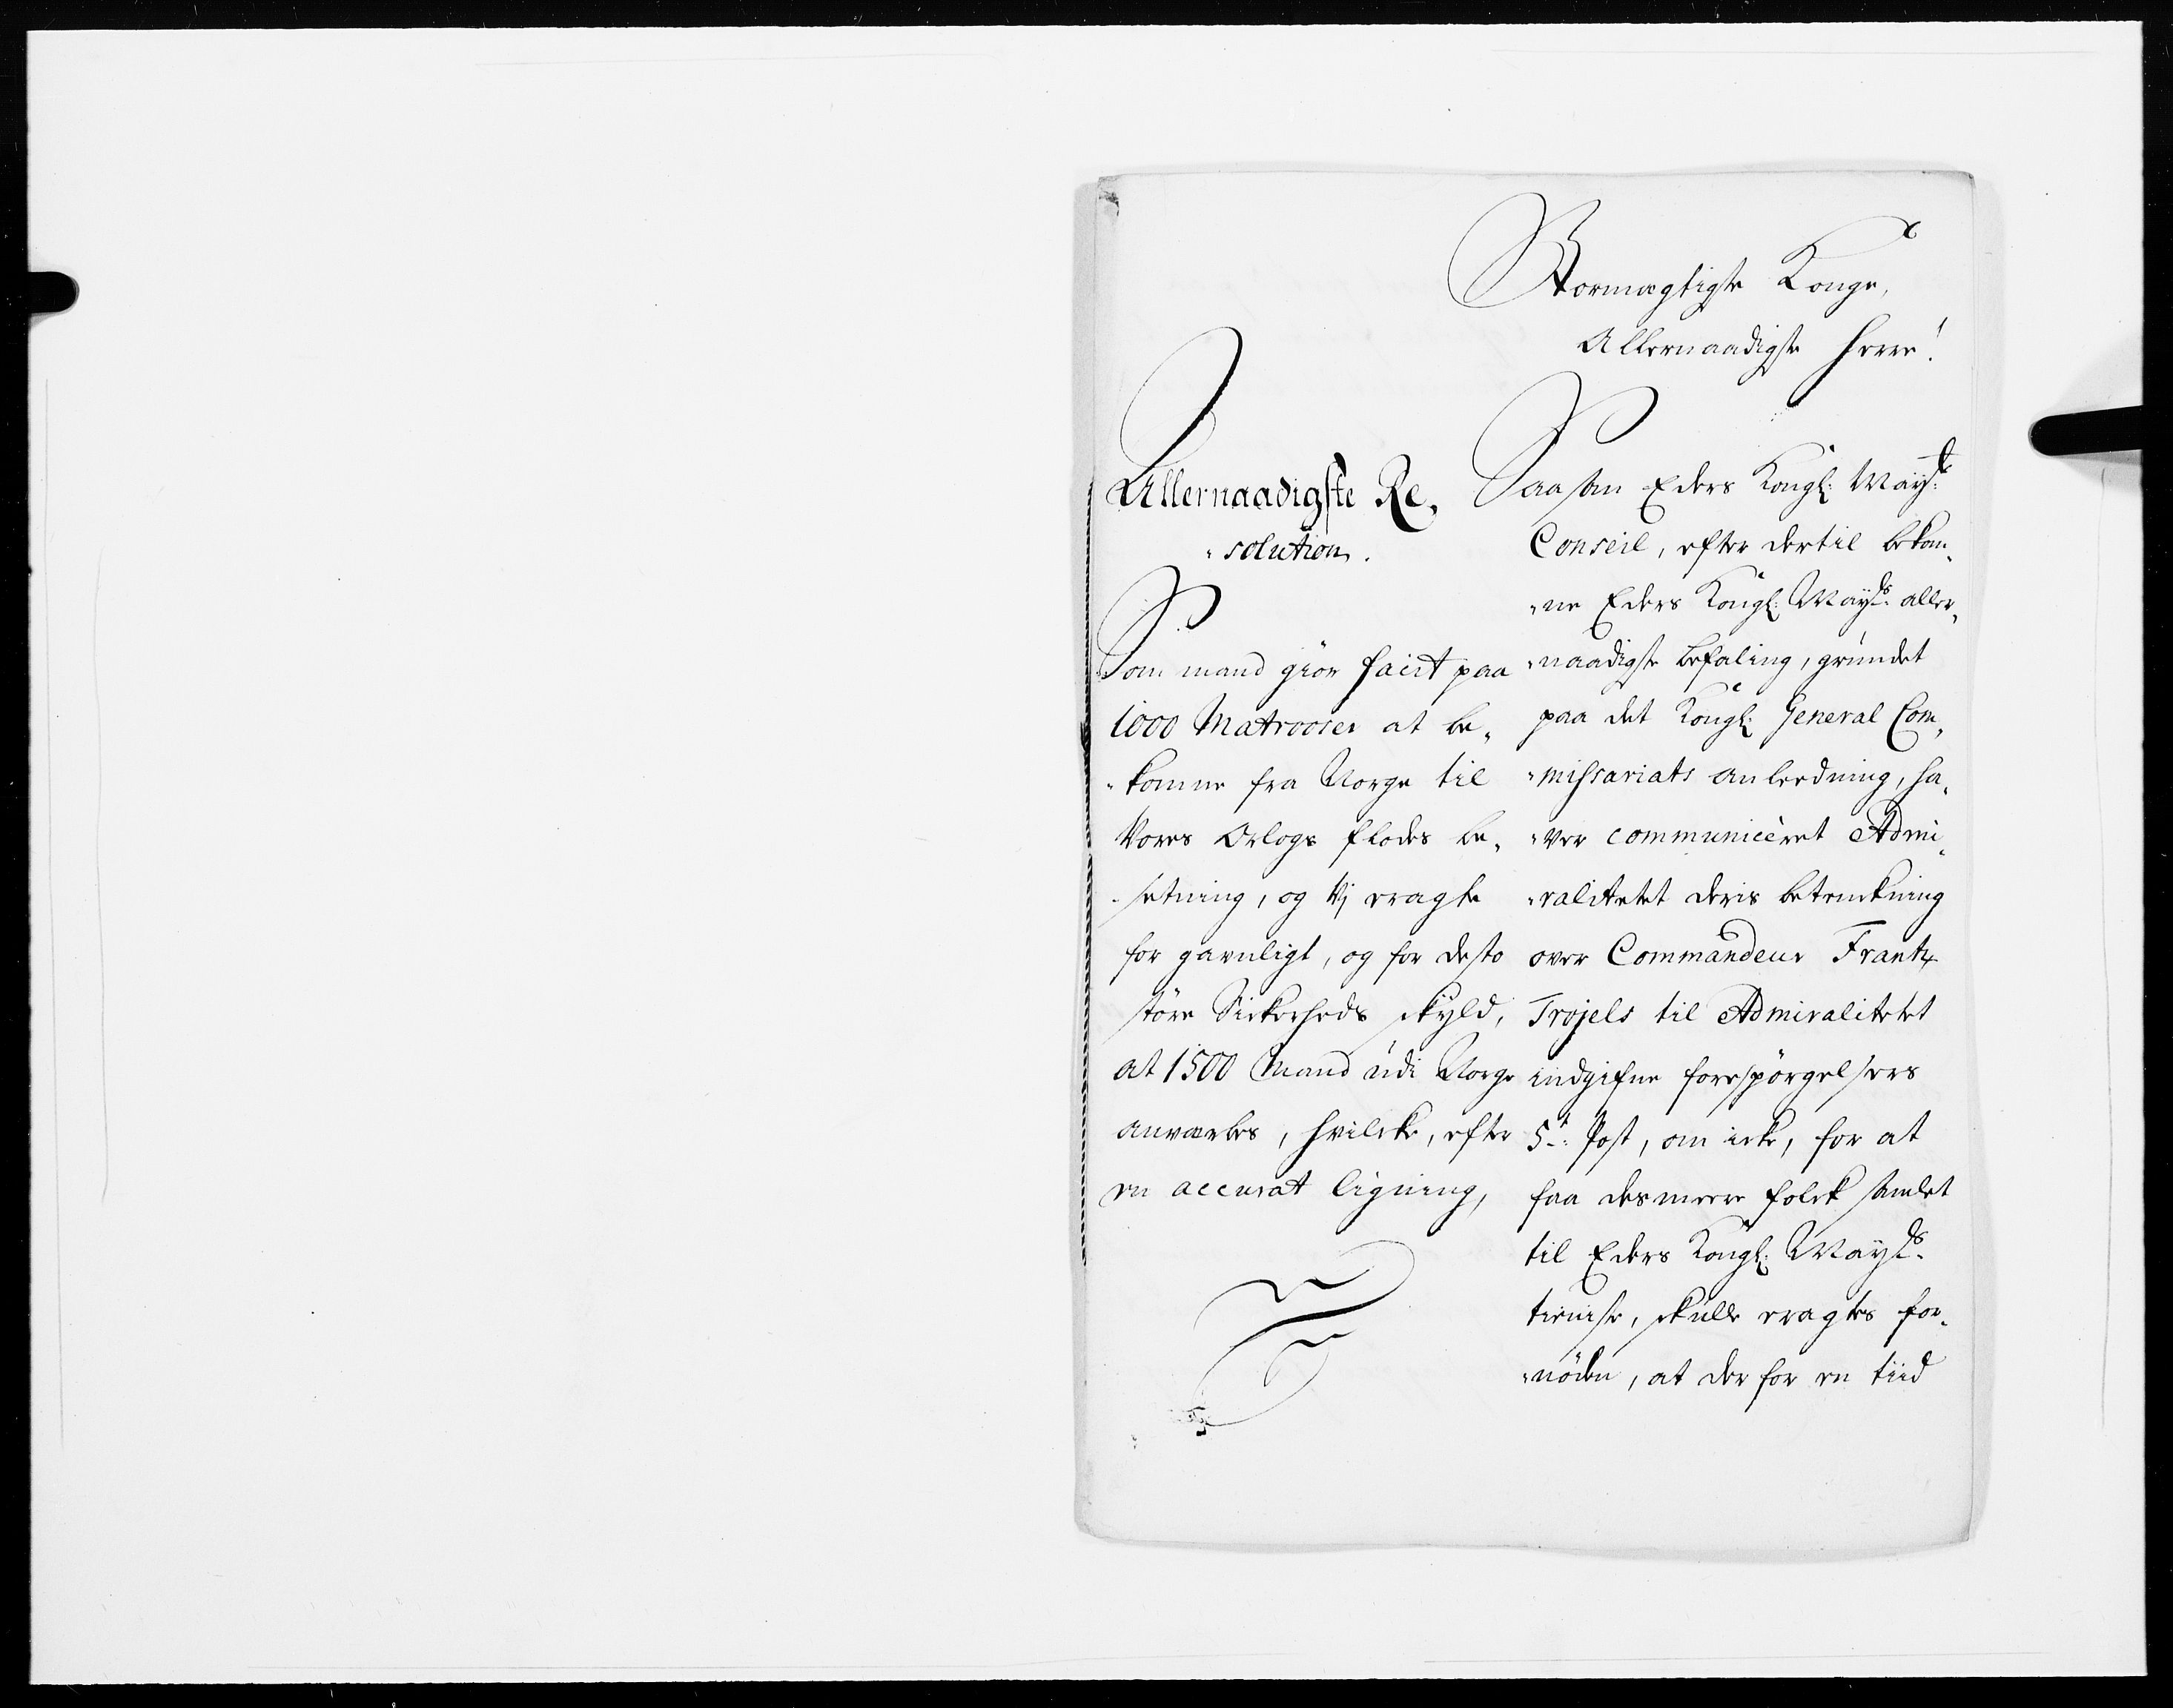 Stormægtigste Konge,
Allernaadigste Herre!
Allernaadigste Re¬
"solution.
Som mand giör facit paa
1000 Matrooser at be¬
"komme fra Norge til
Vores Orlogs flodes be¬
"setning, og Vj eragte
for gavnligt, og for desto
större Sickerheds skyld,
at 1500 Mand udi Norge
anværbes, hvilcke, efter
en accurat ligning,
Saasom Eders Kongl: Mayts
Conseil, efter dertil bekom¬
"ne Eders Kongl: Mayts aller¬
"naadigste befaling, grundet
paa det Kongl: General Com¬
"missariats anleedning, ha¬
"ver communiceret Admi¬
"ralitetet deris betenckning
over Commandeur Frantz
Trojels til Admiralitetet
indgifne forespörgelsers
5te Post, om icke, for at
faa des meere folck samlet
til Eders Kongl: Mayts
tieniste, skulle eragtes for¬
"nöden, at der for en tiid